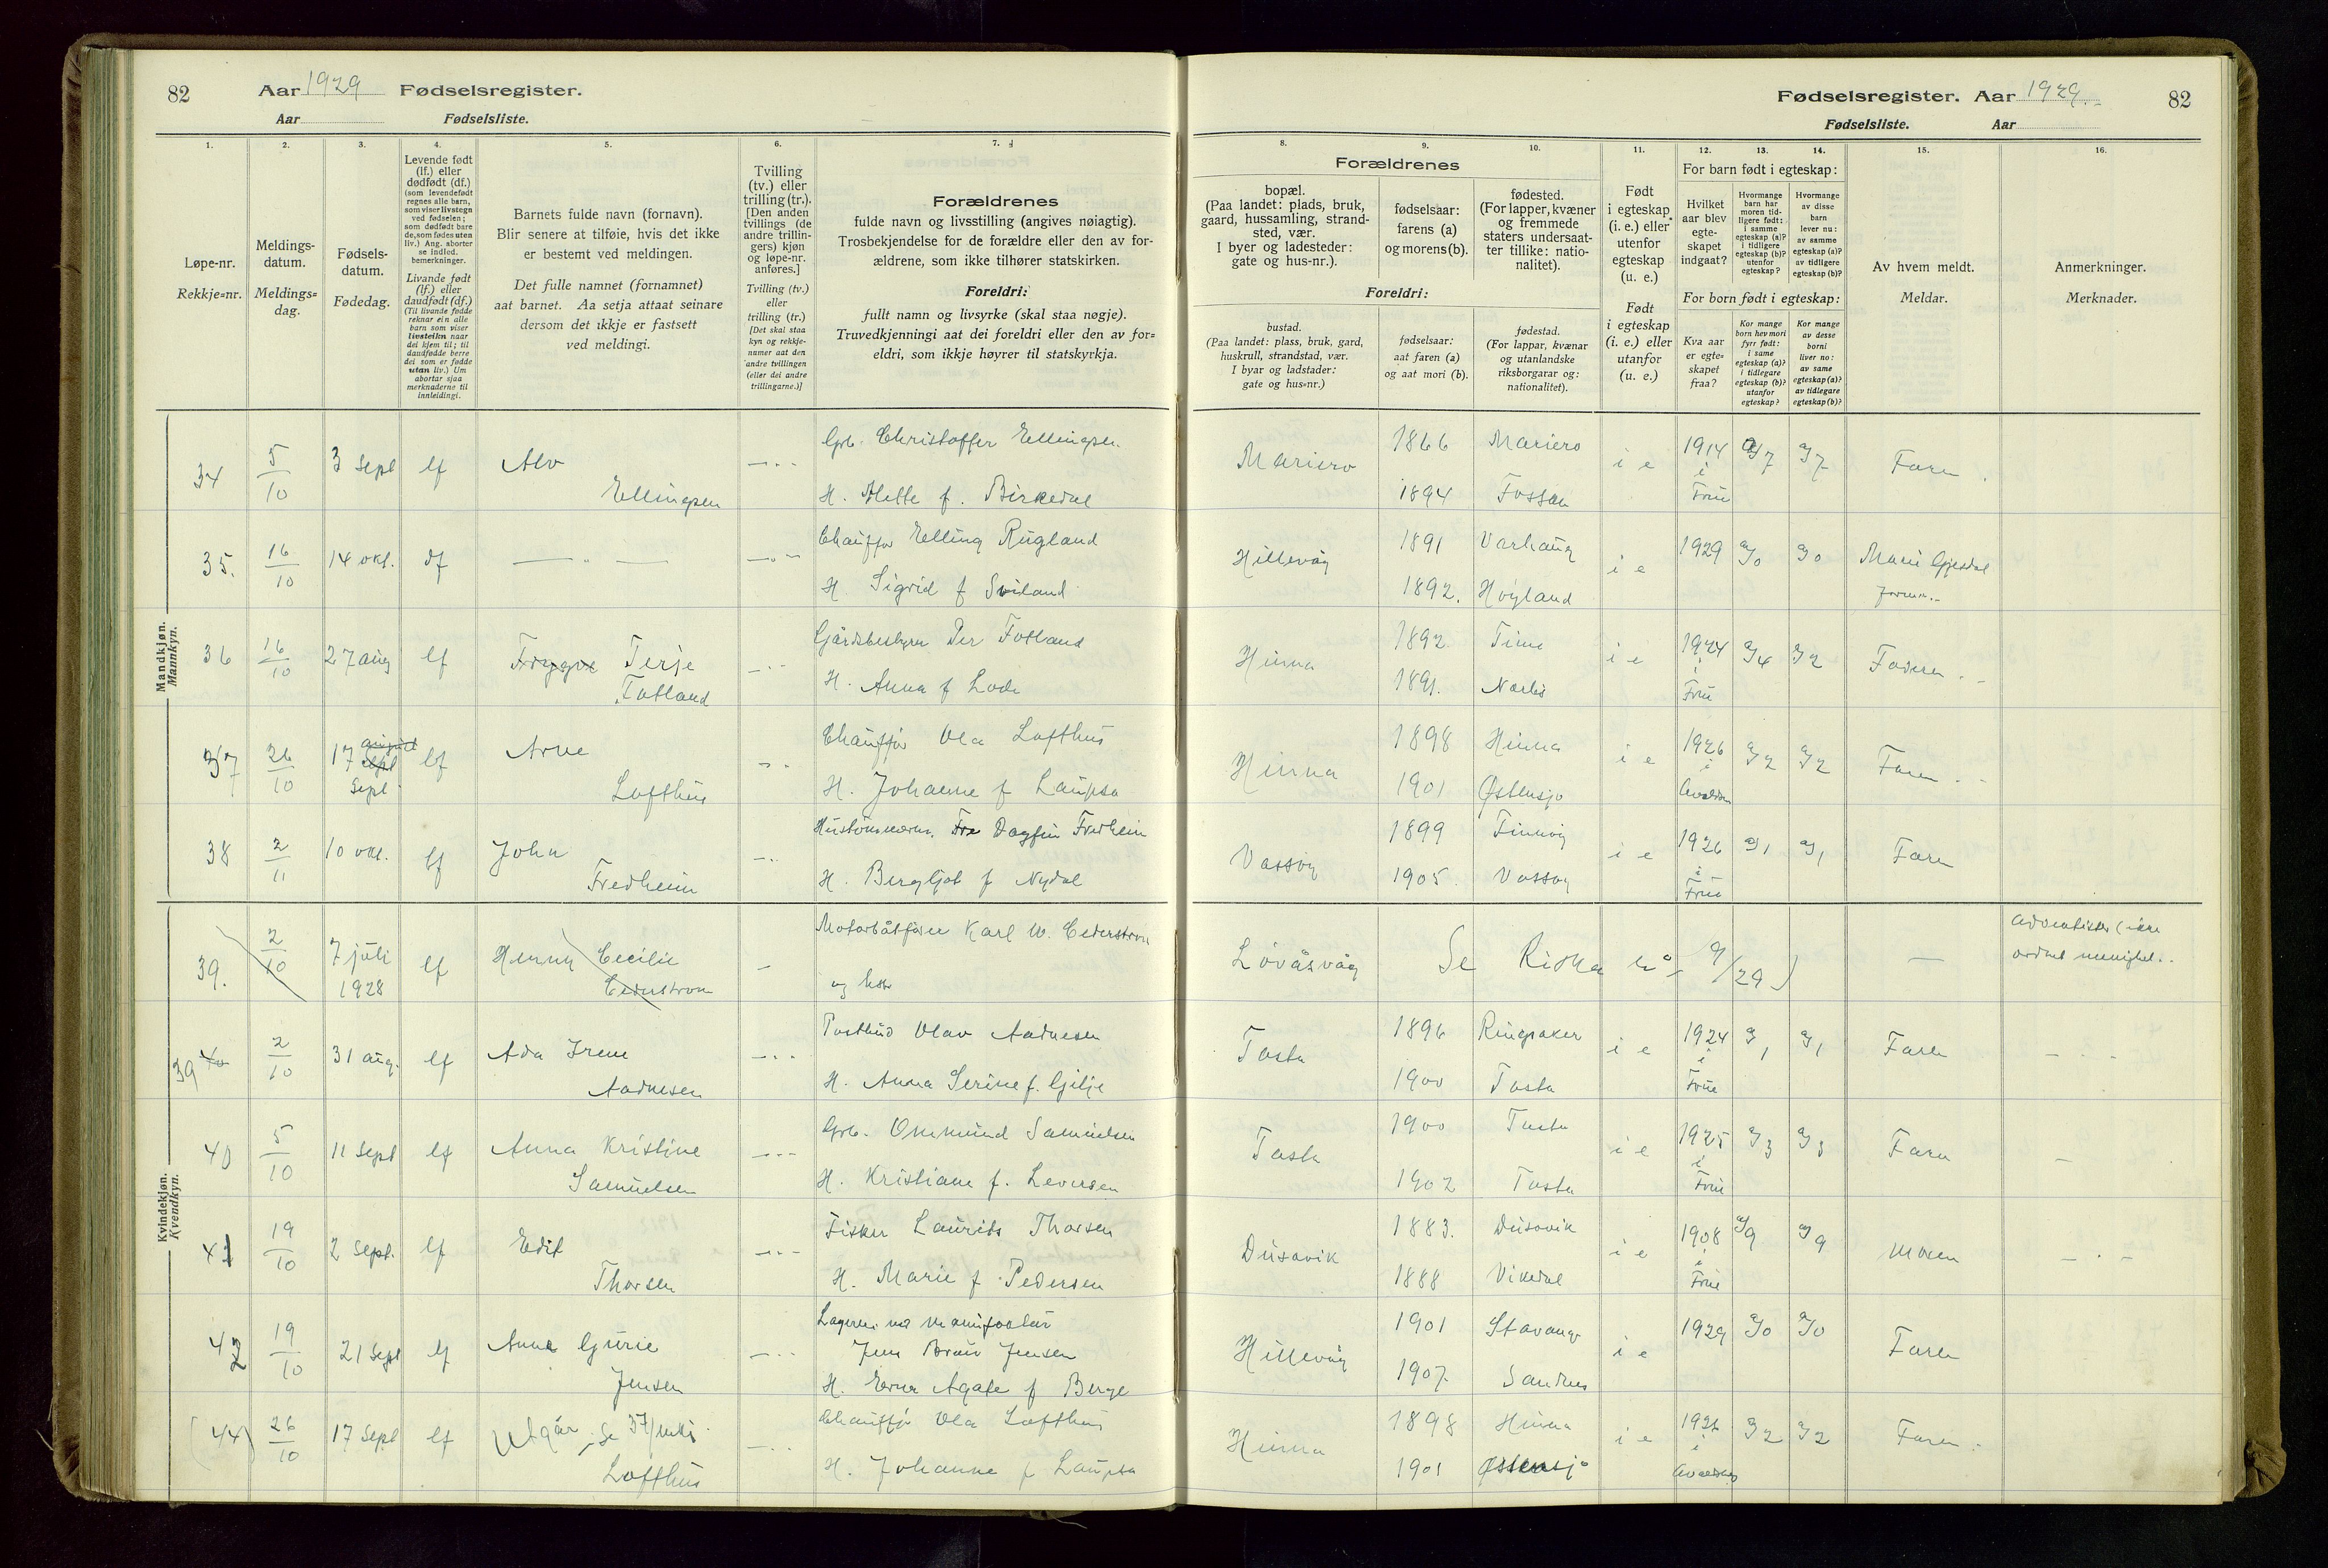 82 Aar 1929 Fødselsregister.
Aar Fødselsliste.
Fødselsregister. Aar 1929. 82
Fødselsliste. Aar
1. 2. 3. 4. 5. 6. 7. 8. 9. 10. 11. 12. 13. 14. 15. 16.
Løpe-nr.
Rekkje=nr.
Meldings-
datum.
Meldings=
dag.
Fødsels-
datum.
Fødedag.
Levende født
(lf.) eller
dødfødt (df.)
(som levendefødt
regnes alle barn,
som viser livstegn
ved fødselen;
som dødfødt bare
de, som fødes uten
liv.) Ang. aborter
se indled.
bemerkninger.
Livande født
(lf.) eller
daudfødt (df.)
(Til livande fødde
reknar ein alle
barn som viser
livsteikn naar
dei kjem til; til
daudfødde berre
dei som er fødde
utan liv.) Um
abortar sjaa
merknaderne til
innleidingi.
Barnets fulde navn (fornavn).
Blir senere at tilføie, hvis det ikke
er bestemt ved meldingen.
Det fulle namnet (fornamnet)
aat barnet. Aa setja attaat seinare
dersom det ikkje er fastsett
ved meldingi.
Tvilling
(tv.) eller
trilling (tr.).
[Den anden
tvillings (de
andre trillin-
gers) kjøn
og løpe-nr.
anføres.]
Tvilling (tv.)
eller
trilling (tr.)
[Det skal staa
kyn og rekkje-
numer aat den
andre tvillingen
(eller dei andre
trillingarne.)]
Forældrenes
fulde navn og livsstilling (angives nøiagtig).
Trosbekjendelse for de forældre eller den av for-
ældrene, som ikke tilhører statskirken.
Foreldri:
fullt namn og livsyrke (skal staa nøgje).
Truvedkjenningi aat dei foreldri eller den av for=
eldri, som ikkje høyrer til statskyrkja.
Forældrenes
bopæl.
(Paa landet: plads, bruk,
gaard, hussamling, strand-
sted, vær.
I byer og ladesteder:
gate og hus-nr.).
fødselsaar:
farens (a)
og morens (b).
fødested.
(For lapper, kvæner
og fremmede
staters undersaat-
ter tillike: natio-
nalitet).
Foreldri:
bustad.
(Paa landet: plass, bruk, gard,
huskrull, strandstad, vær.
I byar og ladstader:
gate og hus=nr.)
fødselsaar:
aat faren (a)
og aat mori (b).
fødestad.
(For lappar, kvænar
og utanlandske
riksborgarar og:
nationalitet).
Født
i egteskap
(i. e.) eller
utenfor
egteskap
(u. e.)
Født
i egteskap
(i. e.) eller
utanfor
(u. e.)
For barn født i egteskap:
Hvilket
aar blev
egte-
skapet
indgaat?
Hvormange
barn har
moren tid-
ligere født:
i samme
egteskap (a)?
i tidligere
egteskap (b)?
utenfor
egteskap?
Hvormange
av disse
barn
lever nu:
av samme
egteskap (a)?
av tidligere
egteskap (b)?
For born født i egteskap:
Kva aar
er egte=
skapet
fraa?
Kor mange
born hev mori
fyrr født:
i same
egteskap (a)?
i tidlegare
egteskap (b)?
utanfor
egteskap?
Kor mange
av desse
borni
liver no:
av same
egteskap (a)?
av tidlegare
egteskap (b)?
Av hvem meldt.
Meldar.
Anmerkninger.
Merknader.
Mandkjøn.
Mannkyn.
34 5/10 3 sept lf Alv Ellingsen
Christoffer Ellingsen
H. Mette f. Birkedal
Mariero 1866 Mariero 1894 Fossan i e 1914 i Frue a/7 a/7 Faren
35. 16/10 14 okt. df
Chauffør Elling Rugland
H. Sigrid f Sviland
Hillevåg 1891 Varhaug 1892. Høyland i e 1929 a/0 a/0 Marie Gjesdal
36 16/10 27 aug lf Trygve Terje Fotland
Gårdsbestyrer Per Fotland
H. Anna f Lode
Hinna 1892 Time 1891. Nærbø i e 1924 i Frue a/4 a/2 Faderen
37 26/10 17 august sept sept lf Arne Lofthus
Chauffør Ola Lofthus
H. Johanne f Laupsa
Hinna 1898 Hinna 1901 Østensjø i e 1926 i a/2 a/2 Faren
38 2/11 10 okt. lf John Fredheim
Dagfin Fredheim
H. Bergljot f Nydal
Vassøy 1899 Finnøy 1905 Vassøy i e 1926 i Frue a/1 a/1 Faren
Kvindekjøn.
Kvendkyn.
39. 2/10 7 juli 1928 lf Henny Cecilie Cederstrøm
Motorbåtfører Karl W. Cederstrøm
og hstr
Lövåsvåg Se Riska
39 40 2/10 31 aug. lf Ada Irene Aadnesen
Postbud Olav Aadnesen
H. Anna Serine f. Gilje
Tasta 1896 Ringsaker 1900 Tasta i e 1924 i Frue a/1 a/1 Faren
40 5/10 11 sept lf Anna Kristine Samuelsen
Ommund Samuelsen
H. Kristiane f. Leversen
Tasta 1900 Tasta 1902 Tasta i e 1925 i Frue a/3 a/3 Faren
41 19/10 2 sept. lf Edit Thorsen
Fisker Laurits Thorsen
H. Marie f. Pedersen
Dusavik 1883. Dusavik 1888 Vikedal i e 1908 i Frue a/9 a/9 Moren
42 19/10 21 sept lf Anna Gurie Jensen
Jensen
H. Erna Agate f Berge
Hillevåg 1901 Stavanger 1907. Sandnes i e 1929 a/0 a/0 Faren
(44) 26/10 17 sept lf Utgår. Se 37/ Lofthus
Chauffør Ola Lofthus
H. Johanne f Laupsa
Hinna 1898 Hinna 1901 Østensjø i e 1926 i Avaldsnes a/2 a/2 Faren